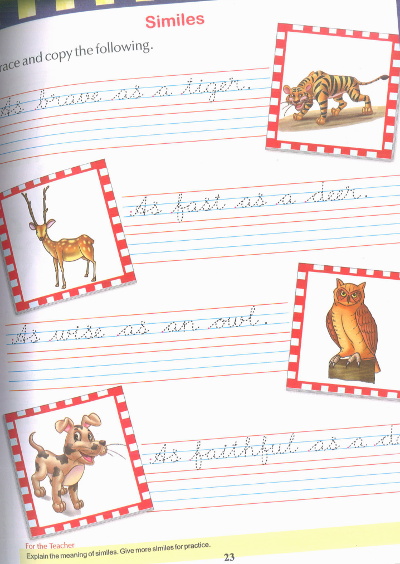 Similes
race and copy the following.
As brave as a tiger.
As fast as a deer.
As wise as an owl.
As faithful as a do
For the Teacher
Explain the meaning of similes. Give more similes for practice.
23